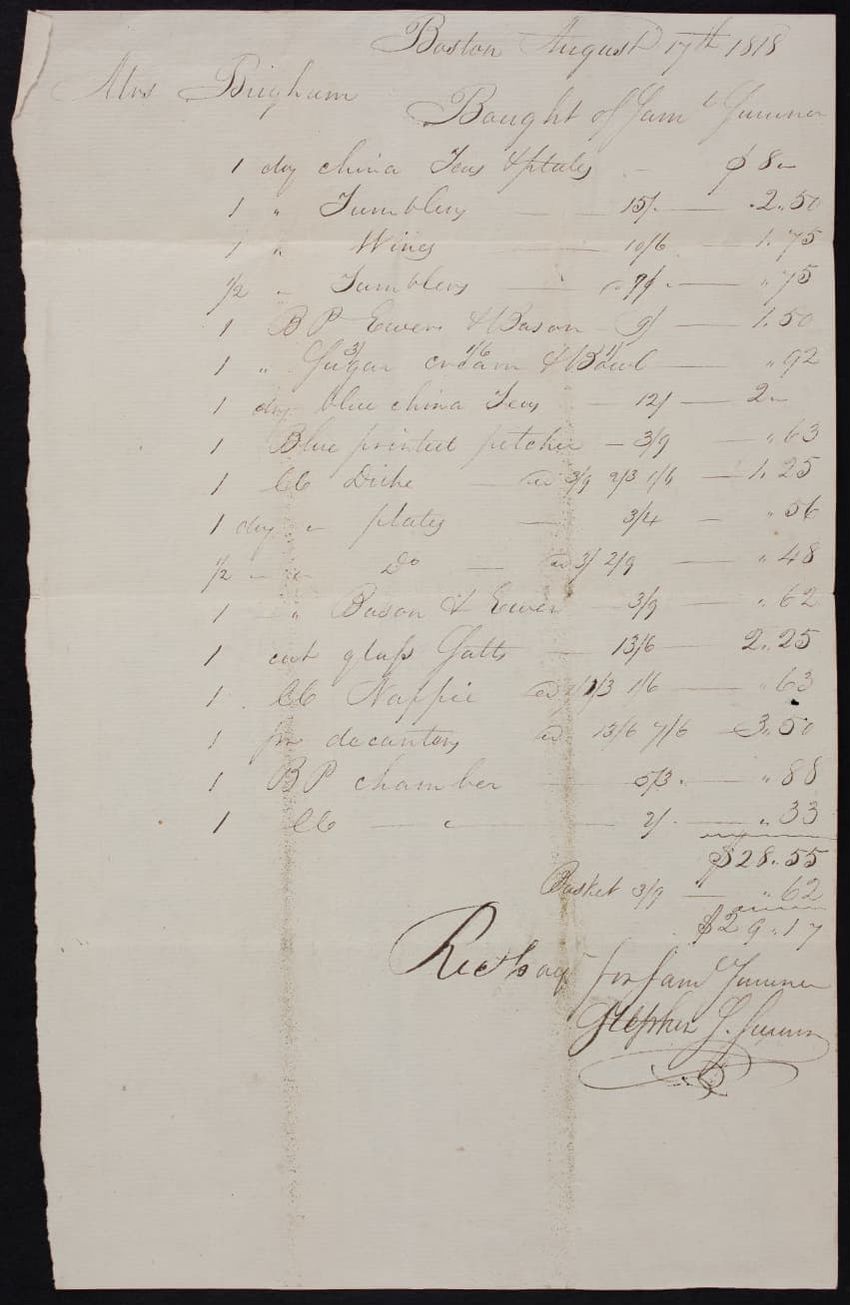 Boston August 17th 1818
Mrs Brigham
Bought of Saml Sumner
1 doz china Teas & plates - $8 "
1 " Tumblers 15/. 2.50
1 " Wines 10/6 1.75
1/2 " Tumblers 9/. " 75
1 BP Ewer & Bason 9/ 1.50
1 " Sugar 3/ cream 1/6 & Bowl 1/ " 92
1 doz blue china Teas 12/ 2 "
1 Blue printed pitcher 3/9 " 63
1 CC Dishe @ 3/9 2/3 1/6 1.25
1 doz " plates 3/4 " 56
1/2 " " Do @ 3/ 2/9 " 48
1 " Bason & Ewer 3/9 " 62
1 cut glass Salts 13/6 2.25
1 CC Nappie @ 2/3 1/6 " 63
1 pr decanters @ 13/6 7/6 3.50
1 BP chamber 5/3 . " 88
1 CC " 2/. " 33
$28.55
Basket 3/9 " 62
$29.17
Recd pay for Saml Sumner
Stephen S. Sumner